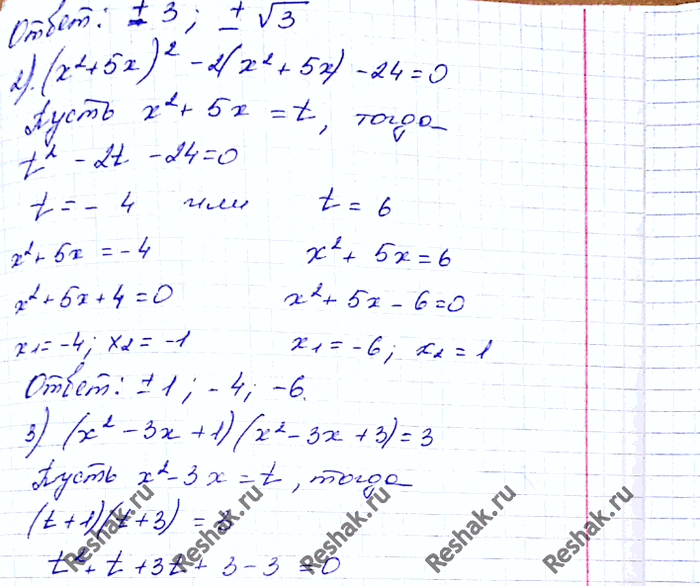 Ответ: ± 3; ± √3
2). (x²+5x)² -2(x²+5x) -24=0
Пусть x²+5x =t, тогда
t² -2t -24=0
t = - 4 или t = 6
x²+5x =-4 x²+ 5x=6
x²+5x+4=0 x²+5x-6=0
x₁=-4; x₂= -1 x₁=-6; x₂=1
Ответ: ±1; -4; -6.
3) (x²-3x+1)(x²-3x+3)=3
Пусть x²-3x =t, тогда
(t+1)(t+3) = 3
t²+t+3t+3-3=0
Reshak.ru Reshak.ru Reshak.ru Reshak.ru Reshak.ru